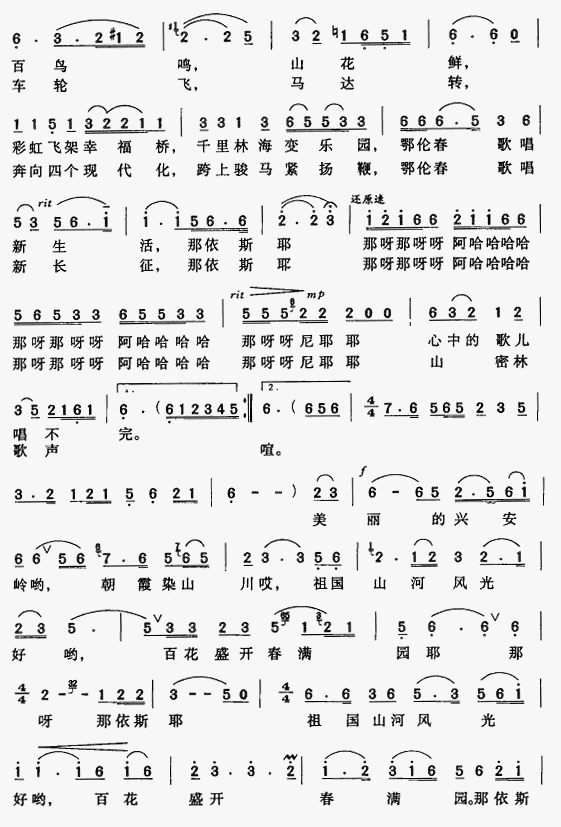 6 · 3 · 2 #1 2 | 2 · 2 5 | 3 2 1 6 5 1 | 6 · 6 0 |
百 鸟 鸣, 山 花 鲜,
车 轮 飞, 马 达 转,
1 1 5 1 3 2 2 1 1 | 3 3 1 3 6 5 5 3 3 | 6 6 6 6 · 5 3 6 |
彩虹飞架幸 福 桥, 千里林海变乐 园, 鄂伦春 歌唱
奔向四个现 代 化, 跨上骏马紧扬 鞭, 鄂伦春 歌唱
rit 还原速
5 3 5 6 · 1 | 1 · 1 5 6 · 6 | 2 · 2 3 | 1 2 1 6 6 2 1 1 6 6 |
新 生 活, 那依 斯 耶 那呀那呀呀 阿哈哈哈哈
新 长 征, 那依 斯 耶 那呀那呀呀 阿哈哈哈哈
rit mp
5 6 5 3 3 6 5 5 3 3 | 5 5 5 2 2 2 0 0 | 6 3 2 1 2 |
那呀那呀呀 阿哈哈哈哈 那呀呀尼耶耶 心中的 歌儿
那呀那呀呀 阿哈哈哈哈 那呀呀尼耶耶 山 密林
1. 2.
3 5 2 1 6 1 | 6 · ( 6 1 2 3 4 5 :| 6 · ( 6 5 6 | 4/4 7 · 6 5 6 5 2 3 5 |
唱 不 完。
歌 声 喧。
f
3 · 2 1 2 1 5 6 2 1 | 6 - - ) 2 3 | 6 - 6 5 2 · 5 6 1 |
美 丽 的兴 安
6 6 ∨ 5 6 7 · 6 5 6 5 | 2 3 · 3 5 6 | 2 · 1 2 3 2 · 1 |
岭哟, 朝 霞染山 川哎, 祖国 山 河 风光
2 3 5 · | 5 ∨ 3 3 2 3 5 1 2 1 | 5 6 · 6 ∨ 6 |
好 哟, 百花 盛开春满 园耶 那
4/4 2 - - 1 2 2 | 3 - - 5 0 | 4/4 6 · 6 3 6 5 · 3 5 6 1 |
呀 那依斯 耶 祖 国山河风 光
1 1 · 1 6 1 6 | 2 3 · 3 · 2 | 1 · 2 3 1 6 5 6 2 1 |
好哟, 百花 盛开 春 满 园。那依斯